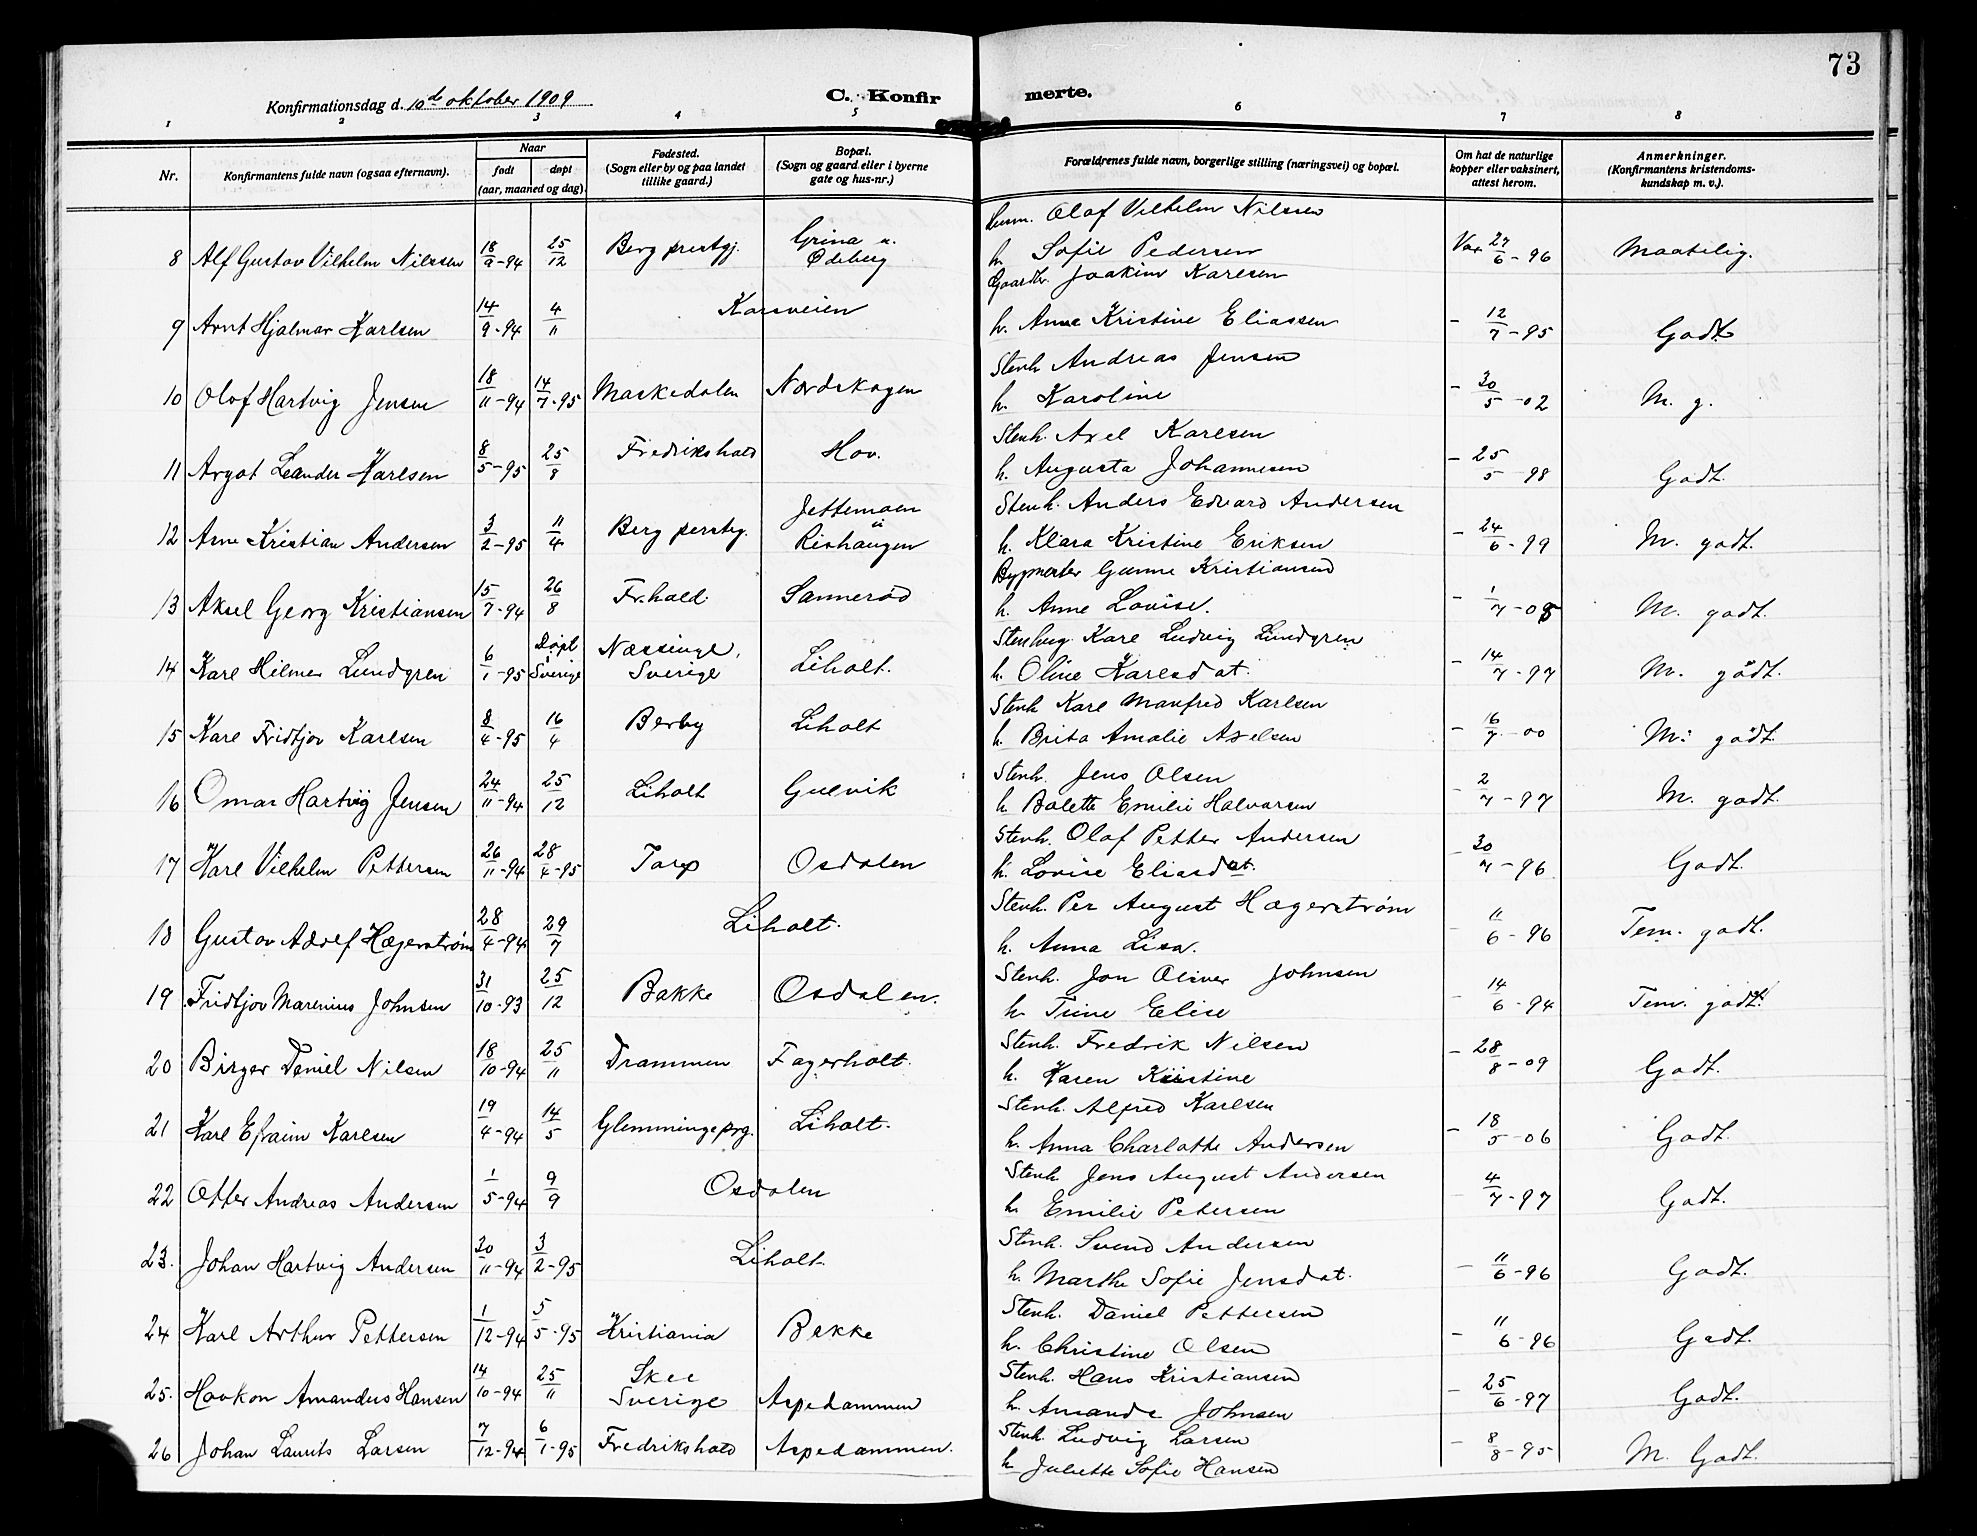 73
Konfirmationsdag d. 10de oktober 1909
C. Konfirmerte.
1 2 3 4 5 6 7 8
Nr. | Konfirmantens fulde navn (ogsaa efternavn). | Naar født døpt (aar, maaned og dag). | Fødested. (Sogn eller by og paa landet tillike gaard.) | Bopæl. (Sogn og gaard eller i byerne gate og hus-nr.) | Forældrenes fulde navn, borgerlige stilling (næringsvei) og bopæl. | Om hat de naturlige kopper eller vaksinert, attest herom. | Anmerkninger. (Konfirmantens kristendoms-kundskap m. v.).
8 Alf Gustav Vilhelm Nilssen 18/9-94 25/12 Berg prestgj. Grina u. Ødeberg Husm. Olaf Vilhelm Nilssen h. Sofie Pedersen Vax 27/6-96 Maatelig.
9 Arnt Hjalmar Karlsen 14/9-94 4/11 Korsveien Gaardbr. Joakim Karlsen h. Anne Kristine Eliassen - 12/7-95 Godt
10 Olaf Hartvig Jensen 18/11-94 14/7-95 Maskedalen Nordskogen Stenh. Andreas Jensen h. Karoline - 30/5-02 M. g.
11 Argot Leander Karlsen 8/5-95 25/8 Fredrikshald Hov. Stenh. Axel Karlsen h. Augusta Johannesen - 25/5 98 Godt.
12 Arne Kristian Andersen 3/2-95 11/4 Berg Jettemoen u Rishaugen Stenh. Anders Edvard Andersen h. Klara Kristine Eriksen - 24/6-99 M. godt.
13 Aksel Georg Kristiansen 15/7-94 26/8 Fr.hald. Sannerød Bygmester Gunne Kristiansen h. Anne Lovise. - 1/7-05 M. godt.
14 Karl Hilmer Lundgren 6/1-95 Døpt i Sverige Næssinge, Sverige Liholt. Stenhug. Karl Ludvig Lundgren h. Oline Karlsdat. - 14/7-97 M. godt.
15 Karl Fridtjov Karlsen 8/4-95 16/4 Berby Liholt Stenh. Karl Manfred Karlsen h. Brita Amalie Axelsen - 16/7-00 M. godt.
16 Omar Hartvig Jensen 24/11-94 25/12 Liholt Gulvik Stenh. Jens Olsen h. Bolette Emilie Halvorsen - 2/7-97 M. godt.
17 Karl Vilhelm Pettersen 26/11-94 28/4-95 Torp Osdalen Stenh. Olaf Petter Andersen h. Lovise Eliasdat. - 30/7-96 Godt.
18 Gustav Adolf Hægerstrøm 28/4-94 29/7 Liholt. Stenh. Per August Hægerstrøm h. Anna Lisa. - 11/6-96 Tem. godt.
19 Fridtjov Marenius Johnsen 31/10-93 25/12 Bakke Osdalen. Stenh. Jon Oliver Johnsen h. Trine Elise - 14/6-94 Tem. godt.
20 Birger Daniel Nilsen 18/10-94 25/11 Drammen Fagerholt. Stenh. Fredrik Nilsen h. Karen Kristine - 28/8-09 Godt.
21 Karl Efraim Karlsen 19/4-94 14/5 Glemminge prg. Liholt. Stenh. Alfred Karlsen h. Anna Charlotte Andersen - 18/5-06 Godt.
22 Otter Andreas Andersen 1/5-94 9/9 Osdalen Stenh. Jens August Andersen h. Emilie Petersen - 4/7-97 Godt.
23. Johan Hartvig Andersen 30/11-94 3/2-95 Liholt. Stenh. Svend Andersen h. Marthe Sofie Jensdat. - 11/6-96 Godt.
24 Karl Arthur Pettersen 1/12-94 5/5-95 Kristiania Bakke Stenh. Daniel Pettersen h. Christine Olsen - 11/6-96 Godt.
25. Haakon Amandus Hansen 14/10-94 25/11 Skee Sverige Aspedammen Stenh. Hans Kristiansen h. Amanda Johnsen - 25/6-97 Godt.
26 Johan Laurits Larsen 7/12-94 6/1-95 Fredrikshald Aspedammen. Stenh. Ludvig Larsen h Juliette Sofie Hansen - 8/8-95 M. Godt.